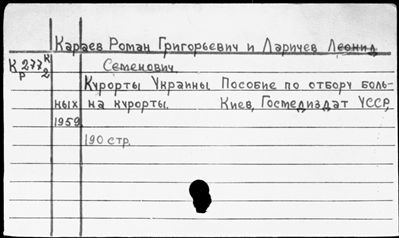 Караев Роман Григорьевич и Ларичев Леонид
Семенович
К 277 к
р 2
Курорты Украины Пособие по отбору боль-
ных на курорты. Киев, Госмедиздат УССР,
1959
190 стр.